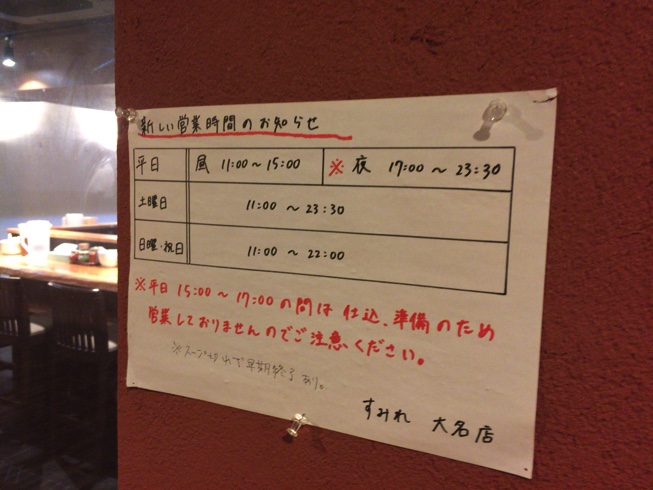 新しい営業時間のお知らせ
平日 昼 11:00～15:00 ※夜 17:00～23:30
土曜日 11:00～23:30
日曜・祝日 11:00～22:00
※平日 15:00～17:00の間は仕込、準備のため
営業しておりませんのでご注意ください。
※スープ切れで早期終了あり。
すみれ 大名店